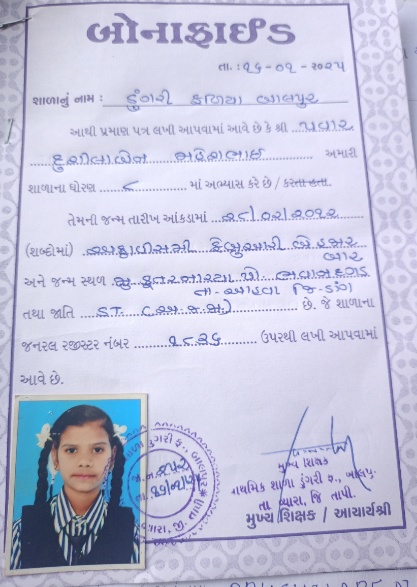 બોનાફાઈડ
તા. : ૧૬-૦૧-૨૦૨૫
શાળાનું નામ : ડુંગરી ફળિયા બાલપુર
આથી પ્રમાણ પત્ર લખી આપવામાં આવે છે કે શ્રી પવાર
સુશીલાબેન મહેશભાઇ અમારી
શાળાના ધોરણ ૮ માં અભ્યાસ કરે છે / કરતા હતા.
તેમની જન્મ તારીખ આંકડામાં ૨૮/૦૨/૨૦૧૨
(શબ્દોમાં) અઠ્ઠાવીસમી ફેબ્રુઆરી બેહજાર
બાર
અને જન્મ સ્થળ મુ. પો.
તા- આહવા જિ-ડાંગ
તથા જાતિ ST. છે. જે શાળાના
જનરલ રજીસ્ટર નંબર ૧૮૩૬ ઉપરથી લખી આપવામાં
આવે છે.
મુખ્ય શિક્ષક
પ્રાથમિક શાળા ડુંગરી ફ., બાલપુર
તા વ્યારા, જિ તાપી.
મુખ્ય શિક્ષક / આચાર્યશ્રી